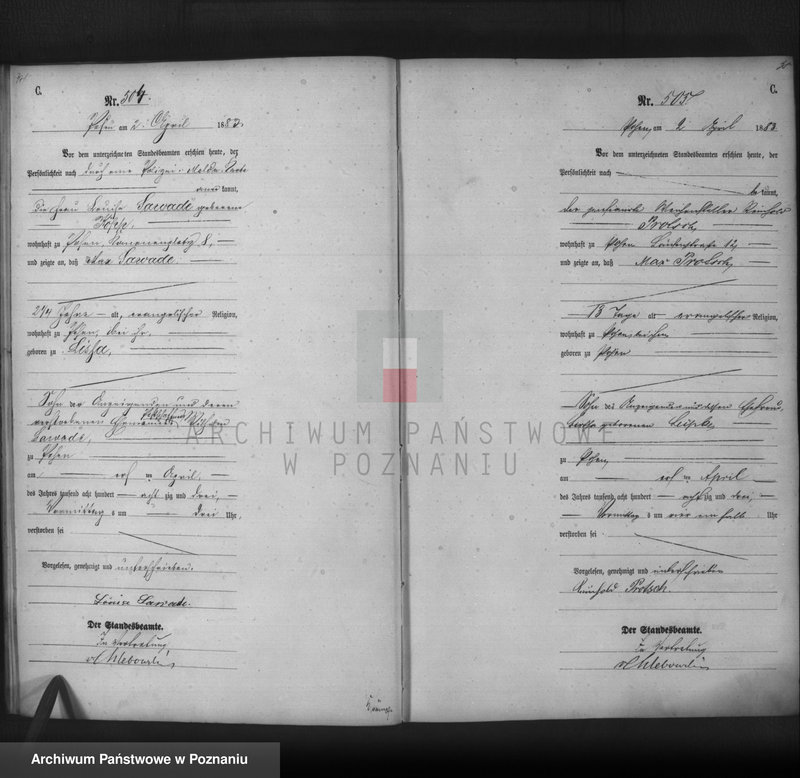 C.
Nr. 504.
Posen am 2. April 1883.
Vor dem unterzeichneten Standesbeamten erschien heute, der
Persönlichkeit nach durch eine Polizei-Melde-Karte
kannt,
die Frau Louise Sawade geborene
wohnhaft zu Posen, 8,
und zeigte an, daß Max Sawade
Jahre alt, evangelischer Religion,
wohnhaft zu Posen, bei ihr,
geboren zu Lissa,
Sohn der Anzeigenden und deren
verstorbenen Ehemannes
Sawade,
zu Posen
am ersten April,
des Jahres tausend acht hundert achtzig und drei,
Vormittags um drei Uhr,
verstorben sei
Vorgelesen, genehmigt und unterschrieben.
Louise Sawade.
Der Standesbeamte.
In Vertretung
C.
Nr. 505
Posen, am 2 April 1883.
Vor dem unterzeichneten Standesbeamten erschien heute, der
Persönlichkeit nach
bekannt,
der Reinhold
Protsch,
wohnhaft zu Posen 12,
und zeigte an, daß Max Protsch,
13 Tage alt evangelischer Religion,
wohnhaft zu Posen
geboren zu Posen
Sohn des Anzeigenden und dessen Ehefrau
geborenen
zu Posen,
am ersten April
des Jahres tausend acht hundert achtzig und drei,
Vormittags um vier ein halb Uhr
verstorben sei
Vorgelesen, genehmigt und unterschrieben
Reinhold Protsch.
Der Standesbeamte.
In Vertretung
ARCHIWUM PAŃSTWOWE
W POZNANIU
Archiwum Państwowe w Poznaniu